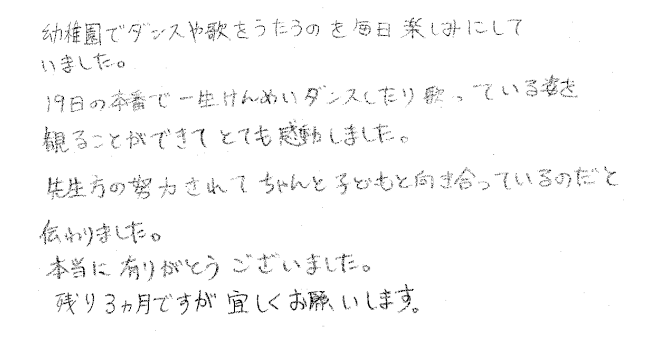 幼稚園でダンスや歌をうたうのを毎日楽しみにして
いました。
19日の本番で一生けんめいダンスしたり歌っている姿を
観ることができてとても感動しました。
先生方の努力されてちゃんと子どもと向き合っているのだと
伝わりました。
本当に有りがとうございました。
残り3ヵ月ですが宜しくお願いします。